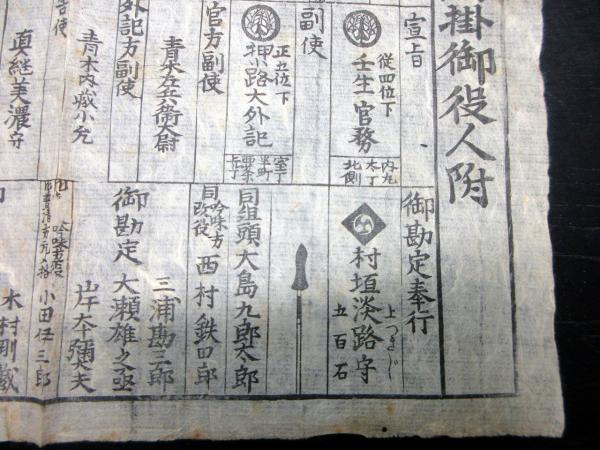 掛御役人附
宣上日
従四位下
壬生官務
北側
副使
正五位下
押小路大外記
官方副使
青木左兵衛大尉
外記方副使
青木内蔵少允
真継美濃守
御勘定奉行
村垣淡路守
上つきじ
五百石
同組頭大島九郎太郎
同吟味方改役
西村鉄四郎
三浦勘三郎
御勘定
大瀬雄之丞
岸本彌三夫
小田伊三郎
木村剛蔵